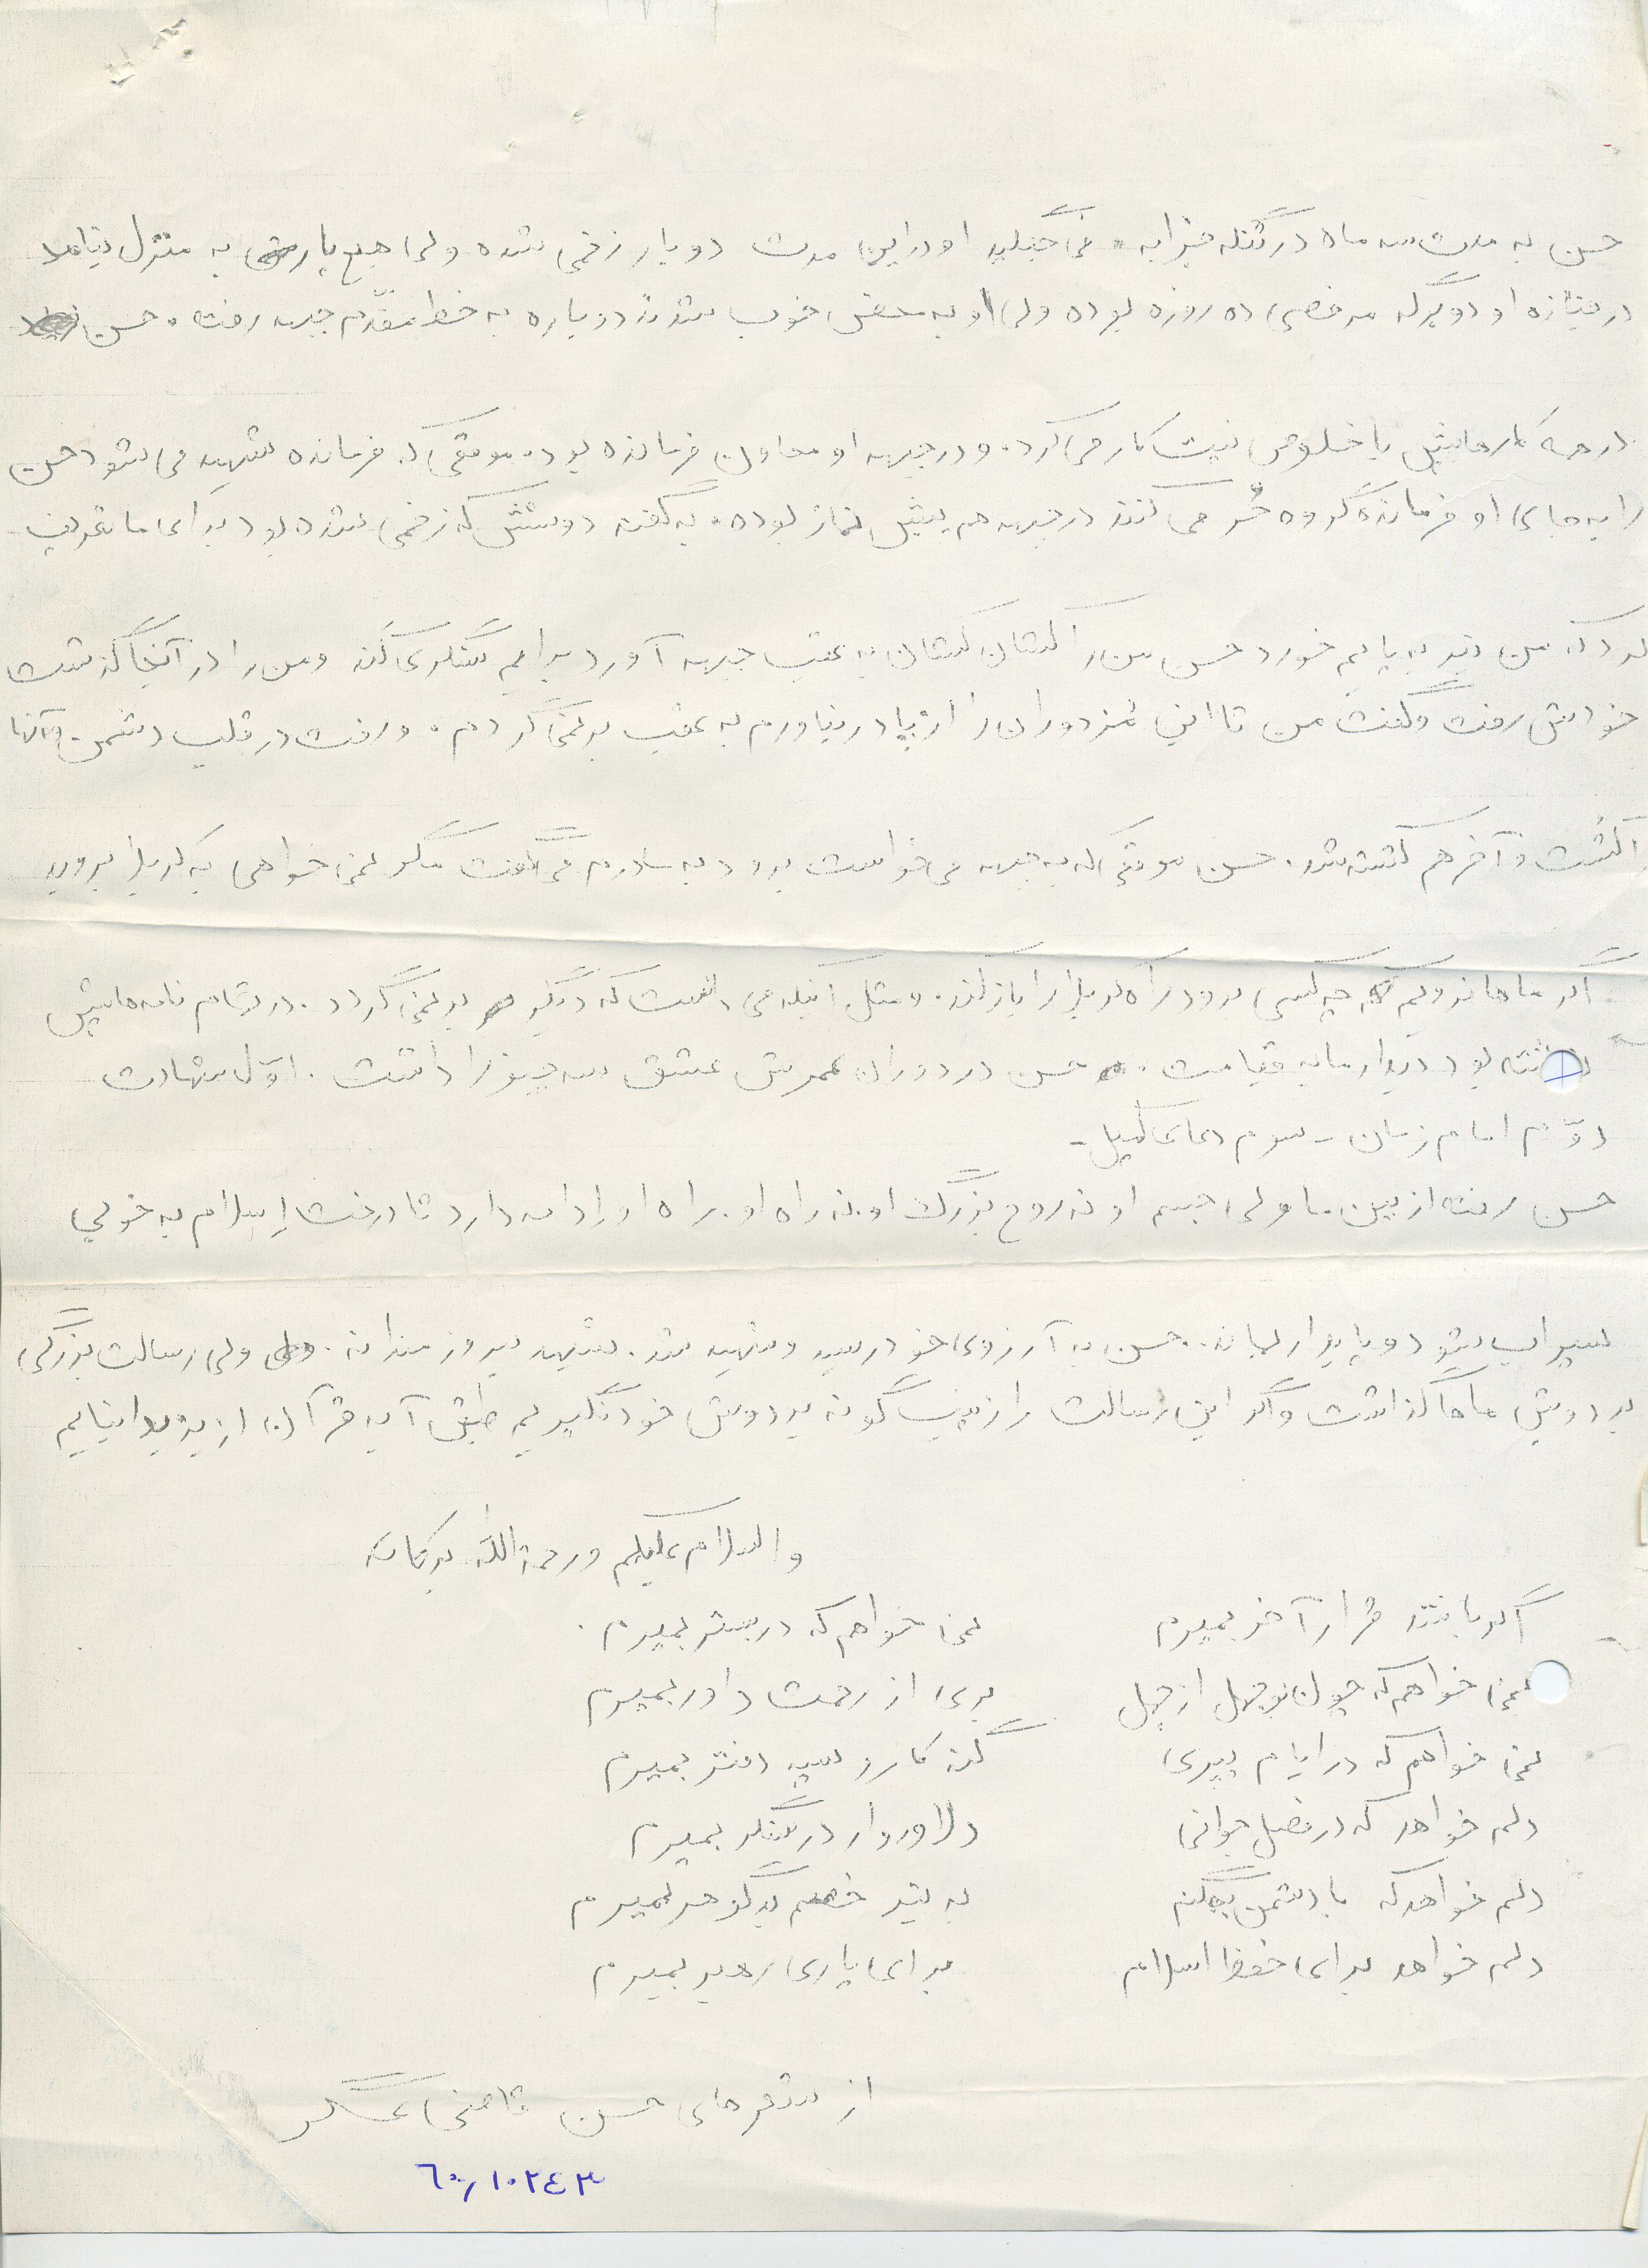 حسن به مدت سه ماه در تنگه چزابه می جنگید او در این مدت دو بار زخمی شده ولی هیچ بار به منزل نیامد
در ضمن او دو برگه مرخصی ده روزه بوده ولی او به محض خوب شدن دوباره به خط مقدّم جبهه رفت. حسن
در همه کارهایش با خلوص نیت کار می کرد. و در جبهه او معاون فرمانده بود. موقعی که فرمانده شهید می شود حسن
را به جای او فرمانده گروه حُر می کنند در جبهه هم پیش نماز بوده. به گفته دوستش که زخمی شده بود برای ما تعریف
کرد که من تیر به پایم خورد حسن من را کشان کشان به عقب جبهه آورد برایم سنگری کند و من را در آنجا گذشت
خودش رفت و گفت من تا این مزدوران را از پا در نیاورم به عقب بر نمی گردم. و رفت در قلب دشمن و آنها
را کشت و آخر هم کشته شد. حسن موقعی که به جبهه می خواست برود به مادرم می گفت مگر نمی خواهی به کربلا بروید
اگر ماها نرویم چه کسی برود راه کربلا را باز کند. و مثل اینکه می دانست که دیگر بر نمی گردد. در تمام نامه هایش
نوشته بود دیدار ما به قیامت. حسن در دوران عمرش عشق سه چیز را داشت. اوّل شهادت
دوّم امام زمان - سوم دعای کمیل -
حسن رفت از بین ما ولی جسم او نه روح بزرگ او نه راه او. راه او ادامه دارد تا درخت اسلام به خوبی
سیراب شود و پایدار بماند. حسن به آرزوی خود رسید و شهید شد. شهید پیروزمندانه. ولی رسالت بزرگی
بر دوش ماها گذاشت و اگر این رسالت را زینب گونه بر دوش خود نگیریم طبق آیه قرآن
والسلام علیکم و رحمة الله برکاته
اگر باشد قرار آخر بمیرم نمی خواهم که در بستر بمیرم.
نمی خواهم که چون بوجهل از جهل بری از رحمت داور بمیرم
نمی خواهم که در ایام پیری گنه کار و سیه دفتر بمیرم
دلم خواهد که در فصل جوانی دلاوروار در سنگر بمیرم
دلم خواهد که با دشمن بجنگم به تیر خصم بد گوهر بمیرم
دلم خواهد برای حفظ اسلام برای یاری رهبر بمیرم
از شعرهای حسن قاضی عسگر
۶۰۸۱۰۲۴۳